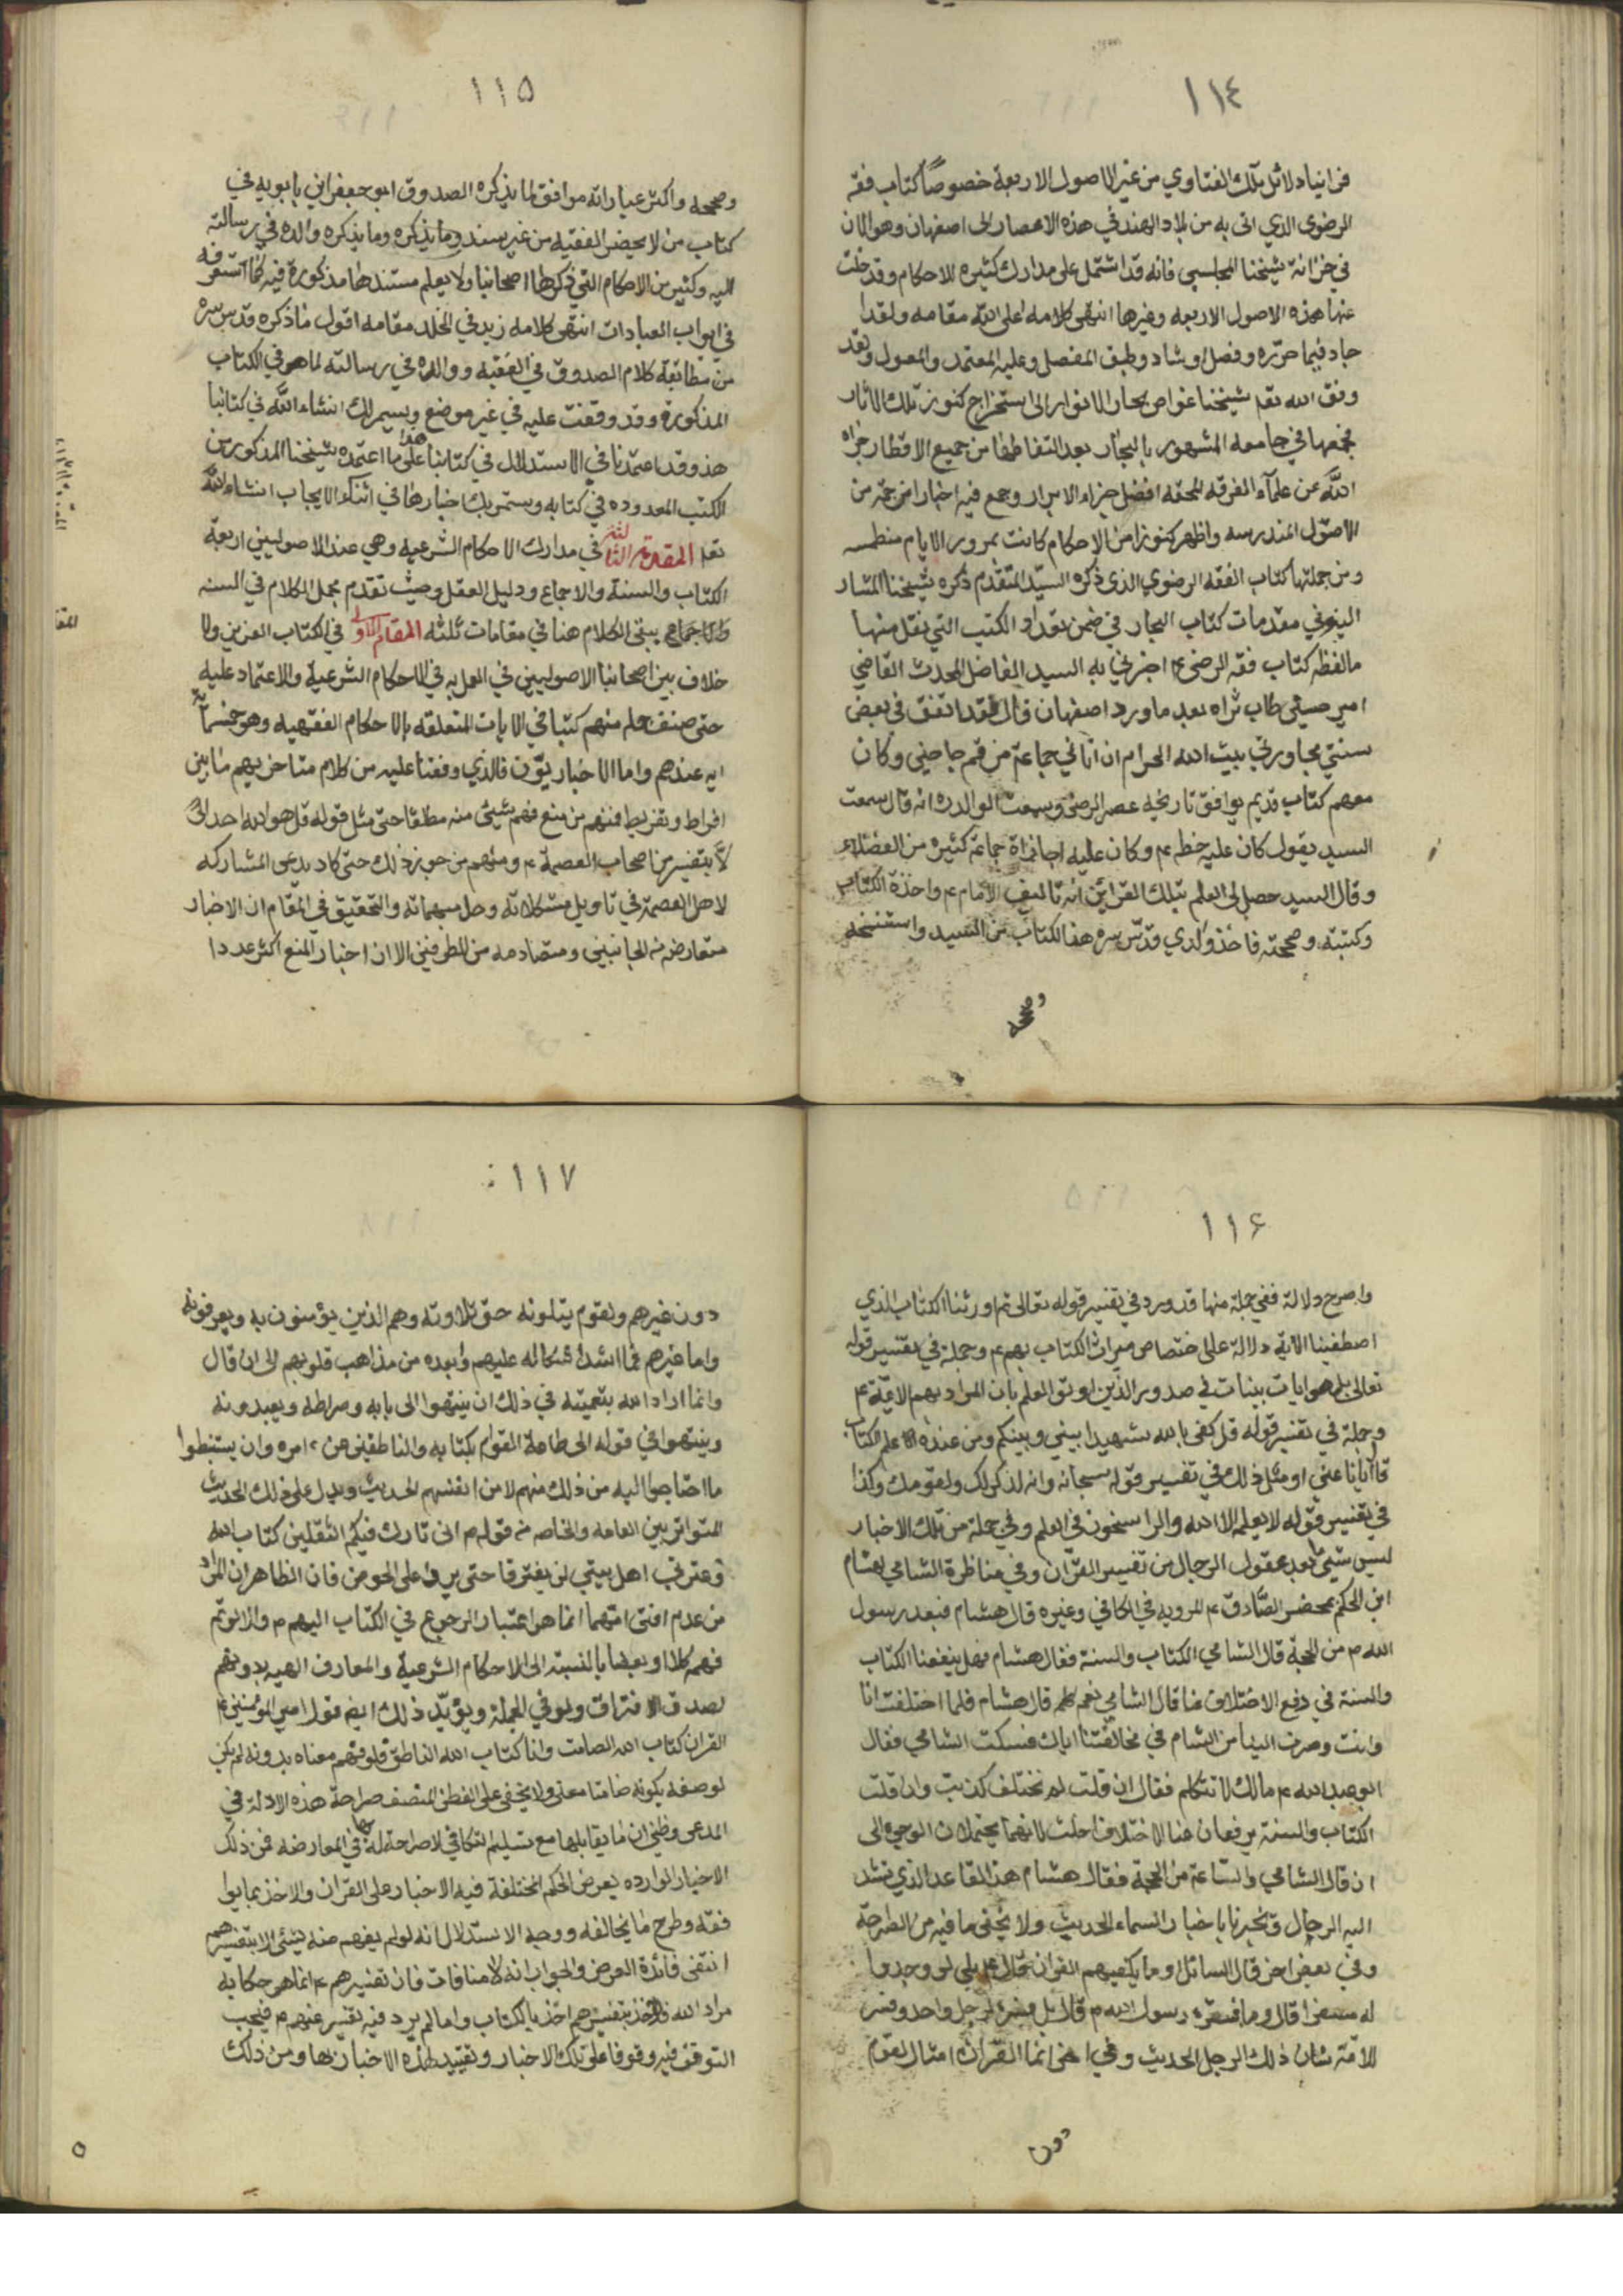 ١١٤
فرانيا دلائل تلك الفتاوي من غير الاصول الاربعة خصوصاً كتاب فقه
الرضوى الذي اتى به من بلاد الهند في هذه الاعصار الى اصفهان وهو الان
في خزانة شيخنا المجلسي فانه قد اشتمل على مدارك كثيره للاحكام وقد خلت
عنها هذه الاصول الاربعه وغيرها انتهى كلامه اعلى الله مقامه ولقد ا
جاد فيما حرّره وفصل وشاد وطبق المفصل وعليه المعتمد والمعول ولقد
وفق الله تعا شيخنا غواص بحار الانوار الى استخراج كنوز تلك الاثار
فجمعها في جامعه المشهور بالبحار بعد التقاطها من جميع الاقطار جزاه
اللّه عن علمآء الفرقه المحقه افضل جزاء الابرار وجمع فيه اخبارا جمه من
الاصول المندرسه واظهر كنوزا من الاحكام كانت بمرور الايام منطمسه
ومن جملتها كتاب الفقه الرضوي الذى ذكره السيّد المتقدم ذكره شيخنا المشار
اليه في مقدمات كتاب البحار في ضمن تعداد الكتب التي نقل منها
ما لفظه كتاب فقه الرضي ع اخبرني به السيد الفاضل المحدث القاضي
امير حسين طاب ثراه بعد ما ورد اصفهان قال قد اتفق في بعض
سنتي مجاورتي بيت الله الحرام ان اتاني جماعة من قم حاجين وكان
معهم كتاب قديم يوافق تاريخه عصر الرضي وسمعت الوالد ره انه قال سمعت
السيد يقول كان عليه خطه ع وكان عليه اجازاة جماعة كثيره من الفضلاء
وقال السيد حصل لى العلم بتلك القرائن انه تاليف الامام ع واخذة الكتاب
وكتبته وصححته فاخذ والدي قدّس سره هذا الكتاب من السيد واستنسخه
وصححه
١١٥
وصححه واكثر عباراته موافق لما يذكره الصدوق ابو جعفر ابن بابويه في
كتاب من لا يحضر الفقيه من غير سند وما يذكره وما يذكره والده في رسالته
اليه وكثير من الاحكام التي ذكرها اصحابنا ولا يعلم مستندها مذكورة فيه كما ستعرفه
في ابواب العبادات انتهى كلامه زيد في الخلد مقامه اقول ما ذكره قدس سره
من مطابقة كلام الصدوق في الفقيه ووالده في رسالته لما هو في الكتاب
المذكورة وقد وقفت عليه في غير موضع وسيمر لك انشاء اللّه في كتابنا
هذ وقد اعتمدنا في الاستدلال في كتابنا هذا على ما اعتمده شيخنا المذكور من
الكتب المعدوده في كتابه وستمر بك اخبارها في اثناء الايجاب انشاء اللّه
تعا المقدمة الثالثة في مدارك الاحكام الشرعيه وهي عند الاصوليين اربعة
الكتاب والسنة والاجماع ودليل العقل وحيث تقدم مجمل الكلام في السنه
والاجماع يبقى الكلام هنا في مقامات ثلثه المقام الاول في الكتاب العزيز ولا
خلاف بين اصحابنا الاصوليين في العمل به في الاحكام الشرعية والاعتماد عليه
حتى صنف جمله منهم كتبا في الايات المتعلقه بالاحكام الفقهيه وهو خمسمائة
ايه عندهم واما الاخباريّون فالذي وقفنا عليه من كلام متاخريهم ما بين
افراط وتفريط فمنهم من منع فهم شيئ منه مطلقا حتى مثل قوله قل هو الله احد الى
لا بتفسير من اصحاب العصمة ع ومنهم من جوز ذلك حتى كاد يدعى المشاركه
لاهل العصمة في تاويل مشكلاته وحل مبهماته والتحقيق في المقام ان الاخبار
متعارضه من الجانبين ومتصادمه من الطرفين الا ان اخبار المنع اكثر عددا
١١٦
واصرح دلالة ففي جملة منها قد ورد في تفسير قوله تعالى ثم اورثنا الكتاب الذي
اصطفينا الاية دلالة على اختصاص ميراث الكتاب بهم ع وجملة في تفسير قوله
تعالى بل هو ايات بينات في صدور الذين اوتو العلم بان المراد بهم الائمة ع
وجملة في تفسير قوله قل كفى بالله شهيدا بيني وبينكم ومن عنده علم الكتاب
قال ايانا عنى او مثل ذلك في تفسير قوله سبحانه وانه لذكر لك ولقومك وكذا
في تفسير قوله لا يعلمه الا الله والراسخون في العلم وفي جملة من تلك الاخبار
ليس شيئ ابعد عقول الرجال من تفسير القرآن وفي مناظرة الشامي بهشام
ابن الحكم بمحضر الصّادق ع المرويه في الكافي وغيره قال هشام فبعد رسول
الله م من الحجة قال الشامي الكتاب والسنة فقال هشام فهل ينفعنا الكتاب
والسنة في دفع الاختلاف عنا قال الشامي نعم قال هشام فلما اختلفت انا
وانت وصرت الينا من الشام في مخالفتنا اياك فسكت الشامي فقال
ابو عبد الله ع مالك لا تتكلم فقال ان قلت لم نختلف كذبت وان قلت
الكتاب والسنة يرفعان عنا الاختلاف احلت لانهما يحتملان الوجوه الى
ان قال الشامي والسّاعة من الحجة فقال هشام هذا القاعد الذي تشد
اليه الرحال ويخبرنا باخبار السماء الحديث ولا يخفى ما فيه من الصراحة
وفي بعض اخر قال السائل او ما يكفيهم القران قال ع بلى لو وجدوا
له مفسرا قال وما فسره رسول الله م قال بلى فسره لرجل واحد وفسر
للامة شان ذلك الرجل الحديث وفي اخر انما القران امثال لقوم
دون
١١٧
دون غيرهم ولقوم يتلونه حق تلاوته وهم الذين يؤمنون به ويعرفونه
واما غيرهم فما اشد اشكاله عليهم وابعده من مذاهب قلوبهم الى ان قال
وانما اراد الله بتعميته في ذلك ان ينتهوا الى بابه وصراطه ويعبدونه
وينتهوا في قوله الى طاعة القوام بكتابه والناطقين عن امره وان يستنبطوا
ما احتاجوا اليه من ذلك منهم لا من انفسهم الحديث ويدل على ذلك الحديث
المتواتر بين العامه والخاصه من قوله م انى تارك فيكم الثقلين كتاب الله
وعترتي اهل بيتي لن يفترقا حتى يردا على الحوض فان الظاهر ان المراد
من عدم افتراقهما انما هو اعتبار الرجوع في الكتاب اليهم م والا لو تم
فهمه كلا او بعضا بالنسبة الى الاحكام الشرعية والمعارف الهيه بدونهم
لصدق الافتراق ولو في الجملة ويؤيّد ذلك ايضا قول امير المؤمنين ع
القران كتاب الله الصامت وانا كتاب الله الناطق فلو فهم معناه بدونه لم يكن
لوصفه بكونه صامتا معنى ولا يخفى على الفطن المنصف صراحة هذه الادلة في
المدعى وظني ان ما يقابلها مع تسليم التكافي لا صراحة له في المعارضه فمن ذلك
الاخبار الوارده بعرض الحكم المختلفة فيه الاخبار على القران والاخذ بما يوا
فقه وطرح ما يخالفه ووجه الاستدلال انه لو لم يفهم منه شيئ الا بتفسيرهم
انتفى فائدة العرض والجواب انه لا منافات فان تفسيرهم ع انما هو حكاية
مراد الله فالاخذ بتفسيرهم اخذ بالكتاب واما لم يرد فيه تفسير عنهم م فيجب
التوقف فيه وقوفا على تلك الاخبار وتقييد لهذه الاخبار بها ومن ذلك